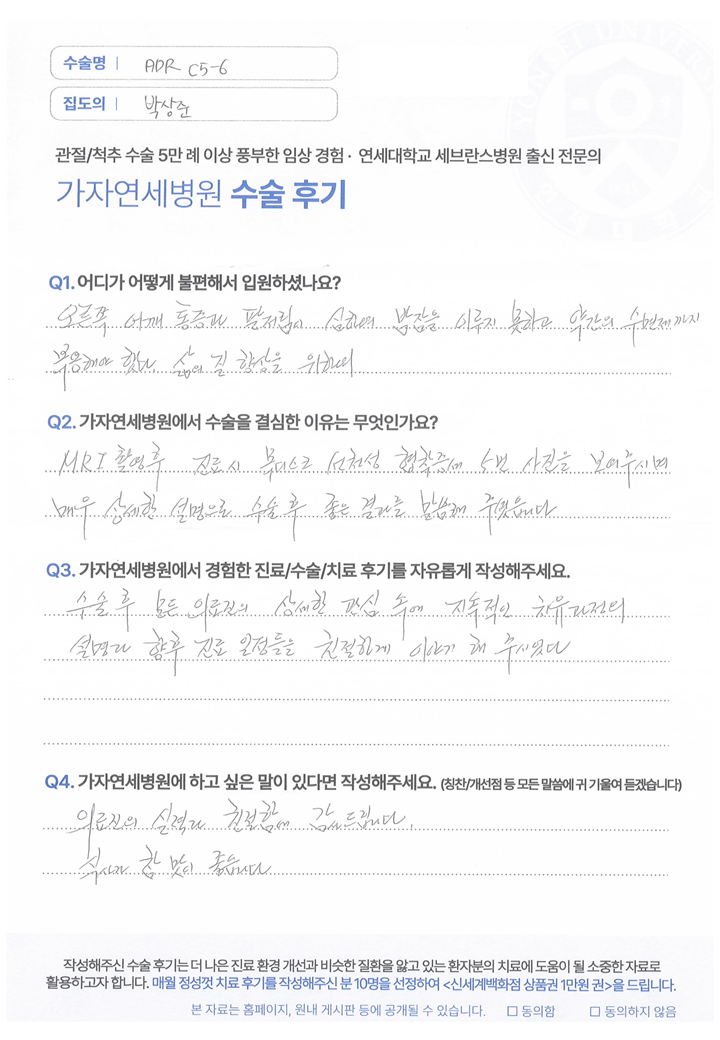 수술명 | ADR C5-6
집도의 | 박상준
관절/척추 수술 5만 례 이상 풍부한 임상 경험 · 연세대학교 세브란스병원 출신 전문의
가자연세병원 수술 후기
Q1. 어디가 어떻게 불편해서 입원하셨나요?
오른쪽 어깨 통증과 팔저림이 심하여 밤잠을 이루지 못하고 약간의 수면제까지
복용해야 했다. 삶의 질 향상을 위하여
Q2. 가자연세병원에서 수술을 결심한 이유는 무엇인가요?
MRI 촬영후 진료시 목디스크 선천성 협착증에 5번 사진을 보여주시며
매우 상세한 설명으로 수술 후 좋은 결과를 말씀해 주셨습니다
Q3. 가자연세병원에서 경험한 진료/수술/치료 후기를 자유롭게 작성해주세요.
수술 후 모든 의료진의 상세한 관심 속에 지속적인 치유과정의
설명과 향후 진료 일정들을 친절하게 이야기 해 주시었다
Q4. 가자연세병원에 하고 싶은 말이 있다면 작성해주세요. (칭찬/개선점 등 모든 말씀에 귀 기울여 듣겠습니다)
의료진의 실력과 친절함에 감사드립니다.
식사가 참 맛이 좋습니다
작성해주신 수술 후기는 더 나은 진료 환경 개선과 비슷한 질환을 앓고 있는 환자분의 치료에 도움이 될 소중한 자료로
활용하고자 합니다. 매월 정성껏 치료 후기를 작성해주신 분 10명을 선정하여 <신세계백화점 상품권 1만원 권>을 드립니다.
본 자료는 홈페이지, 원내 게시판 등에 공개될 수 있습니다. □ 동의함 □ 동의하지 않음